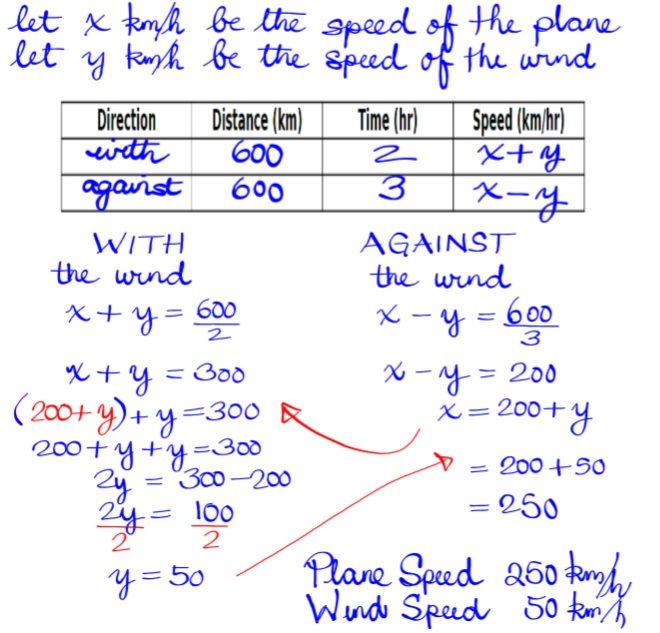 let x km/h be the speed of the plane
let y km/h be the speed of the wind
Direction Distance (km) Time (hr) Speed (km/hr)
with 600 2 x+y
against 600 3 x-y
WITH
the wind
x + y = 600/2
x + y = 300
(200+y)+y=300
200+y+y=300
2y = 300-200
2y/2 = 100/2
y = 50
AGAINST
the wind
x - y = 600/3
x - y = 200
x = 200+y
= 200+50
= 250
Plane Speed 250 km/h
Wind Speed 50 km/h